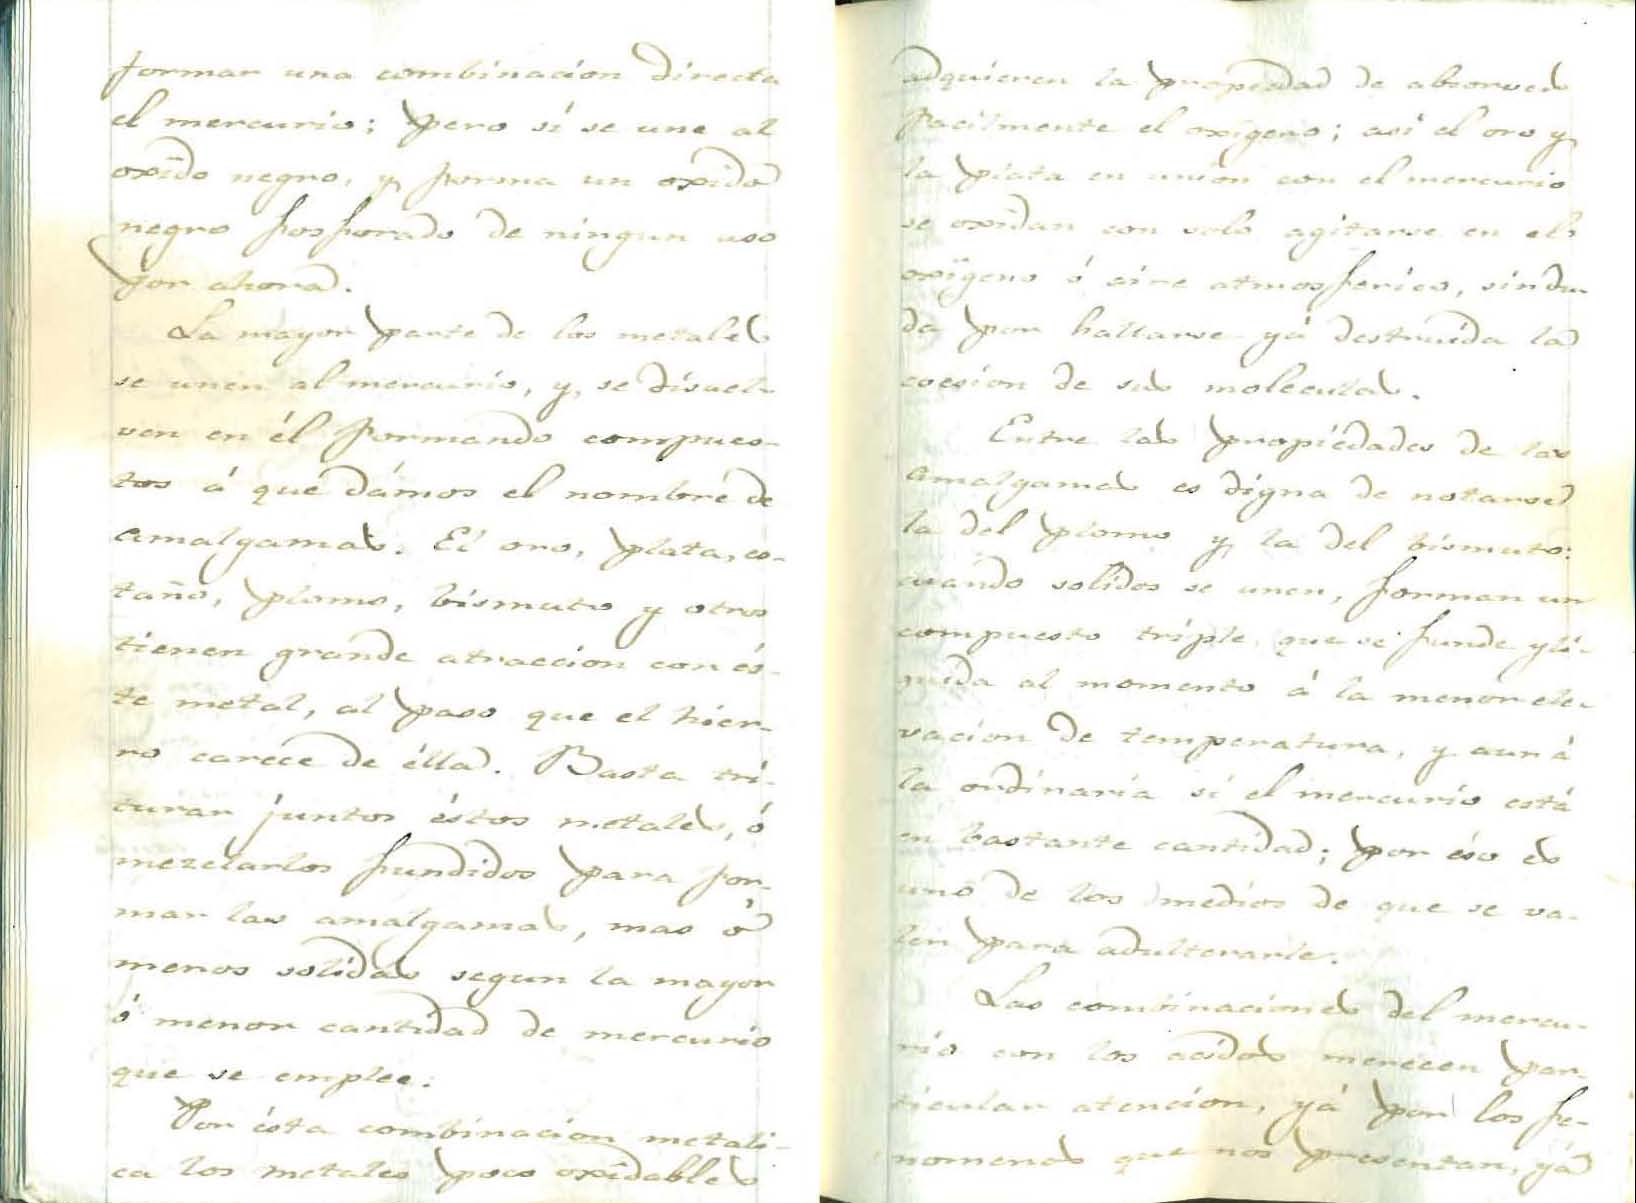 formar una combinacion directa
el mercurio; pero sí se une al
oxîdo negro, y forma un oxîdo
negro fosforado de ningun uso
por ahora.
La mayor parte de los metales
se unen al mercurio, y, se disuel-
ven en él formando compues-
tos á que dámos el nombre de
amalgamas. El oro, plata, es-
taño, plomo, bismuto y otros
tienen grande atraccion con és-
te metal, al paso que el hier-
ro carece de élla. Basta tri-
turar juntos éstos metales, ó
mezclarlos fundidos para for-
mar las amalgamas, mas ó
menos solidas segun la mayor
ó menor cantidad de mercurio
que se emplee.
Por ésta combinacion metali-
ca los metales poco oxîdables
adquieren la propiedad de absorver
facilmente el oxîgeno; asi el oro y
la plata en union con el mercurio
se oxîdan con solo agitarse en el
oxîgeno ó aire atmosferico, sin du-
da por hallarse yá destruida la
coesion de sus moleculas.
Entre las propiedades de las
amalgamas es digna de notarse
la del plomo y la del bismuto:
cuando solidos se unen, forman un
compuesto triple que se funde y lí-
quida al momento á la menor ele-
vacion de temperatura, y aun á
la ordinaria si el mercurio está
en bastante cantidad; por éso es
uno de los medios de que se va-
len para adulterarle.
Las combinaciones del mercu-
rio con los acidos merecen par-
ticular atencion, yá por los fe-
nomenos que nos presentan, yá